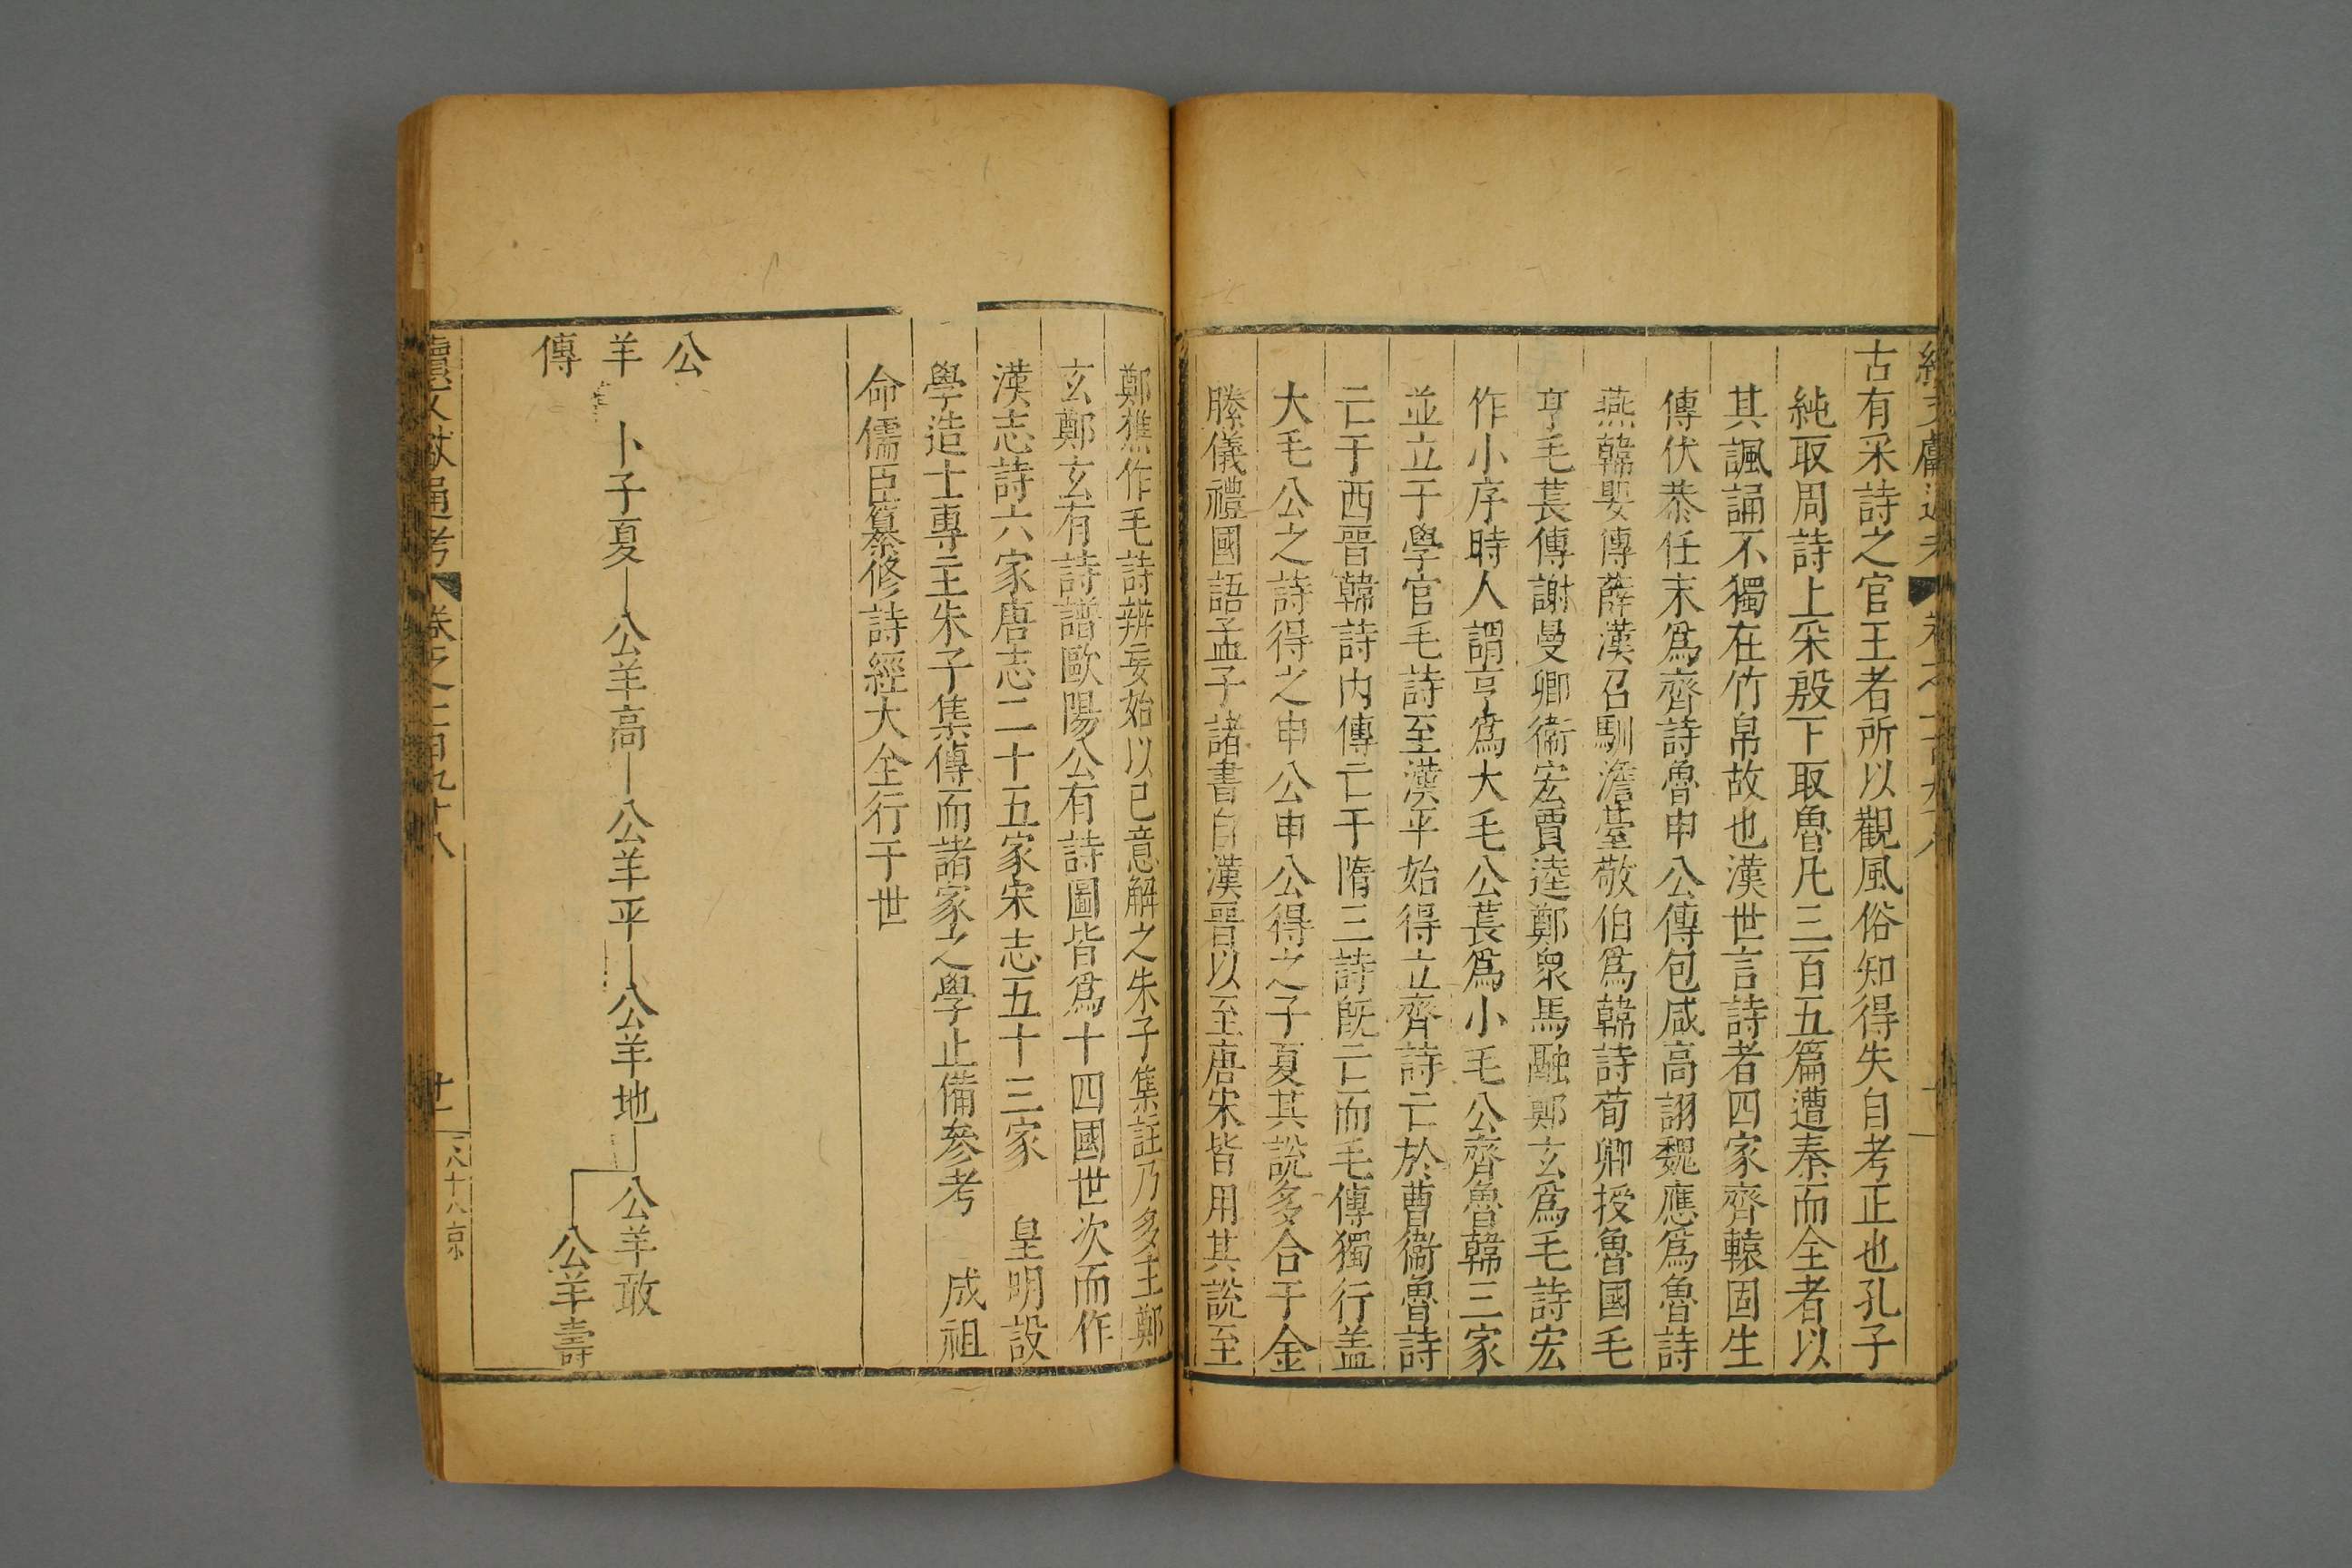 古有采詩之官王者所以觀風俗知得失自考正也孔子
純取周詩上采殷下取魯凡三百五篇遭秦而全者以
其諷誦不獨在竹帛故也漢世言詩者四家齊轅固生
傳伏恭任末爲齊詩魯申公傳包咸高詡魏應爲魯詩
燕韓嬰傳薛漢召馴澹臺敬伯爲韓詩荀卿授魯國毛
亨毛萇傳謝曼卿衛宏賈逵鄭衆馬融鄭玄爲毛詩宏
作小序時人謂亨爲大毛公萇爲小毛公齊魯韓三家
並立于學官毛詩至漢平始得立齊詩亡於曹衞魯詩
亡于西晉韓詩内傳亡于隋三詩旣亡而毛傳獨行盖
大毛公之詩得之申公申公得之子夏其說多合于金
縢儀禮國語孟子諸書自漢晉以至唐宋皆用其說至
鄭樵作毛詩辨妄始以已意解之朱子集註乃多主鄭
玄鄭玄有詩譜歐陽公有詩圖皆爲十四國世次而作
漢志詩六家唐志二十五家宋志五十三家 皇明設
學造士專主朱子集傳而諸家之學止備參考 成祖
命儒臣纂修詩經大全行于世
公羊傳
卜子夏—公羊高—公羊平—公羊地—公羊敢
公羊壽
續文獻通考 卷之一百九十八 廿一
八十八 京